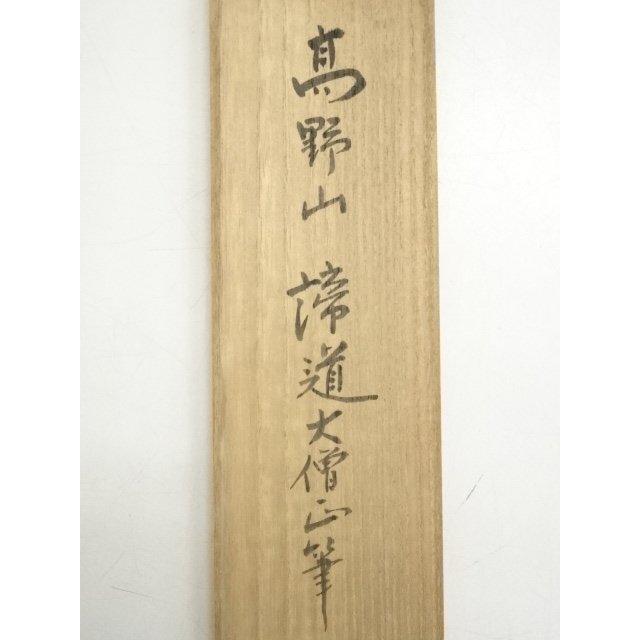 髙野山 諦道大僧正筆